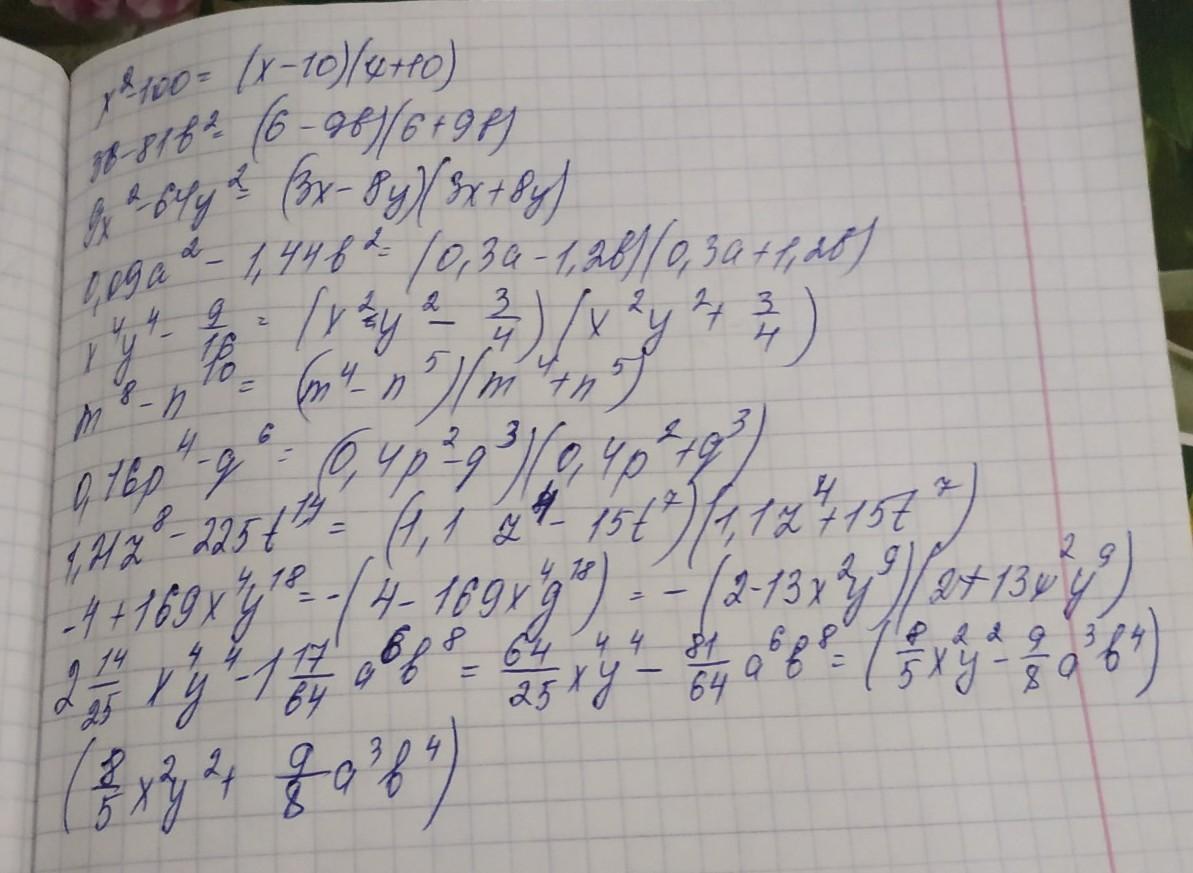 x²-100= (x-10)(4+10)
36-81b²= (6-9b)(6+9b)
9x²-64y²= (3x-8y)(3x+8y)
0,09a²-1,44b²= (0,3a-1,2b)(0,3a+1,2b)
x⁴y⁴- 9/16 = (x²y²- 3/4)(x²y²+ 3/4)
m⁸-n¹⁰= (m⁴-n⁵)(m⁴+n⁵)
0,16p⁴-q⁶= (0,4p²-q³)(0,4p²+q³)
1,21z⁸-225t¹⁴= (1,1 z⁴-15t⁷)(1,1z⁴+15t⁷)
-4+169x⁴y¹⁸=-(4-169x⁴y¹⁸) = -(2-13x²y⁹)(2+13x²y⁹)
2 14/25 x⁴y⁴-1 17/64 a⁶b⁸= 64/25 x⁴y⁴- 81/64 a⁶b⁸= (8/5 x²y²- 9/8 a³b⁴)
(8/5 x²y²+ 9/8 a³b⁴)